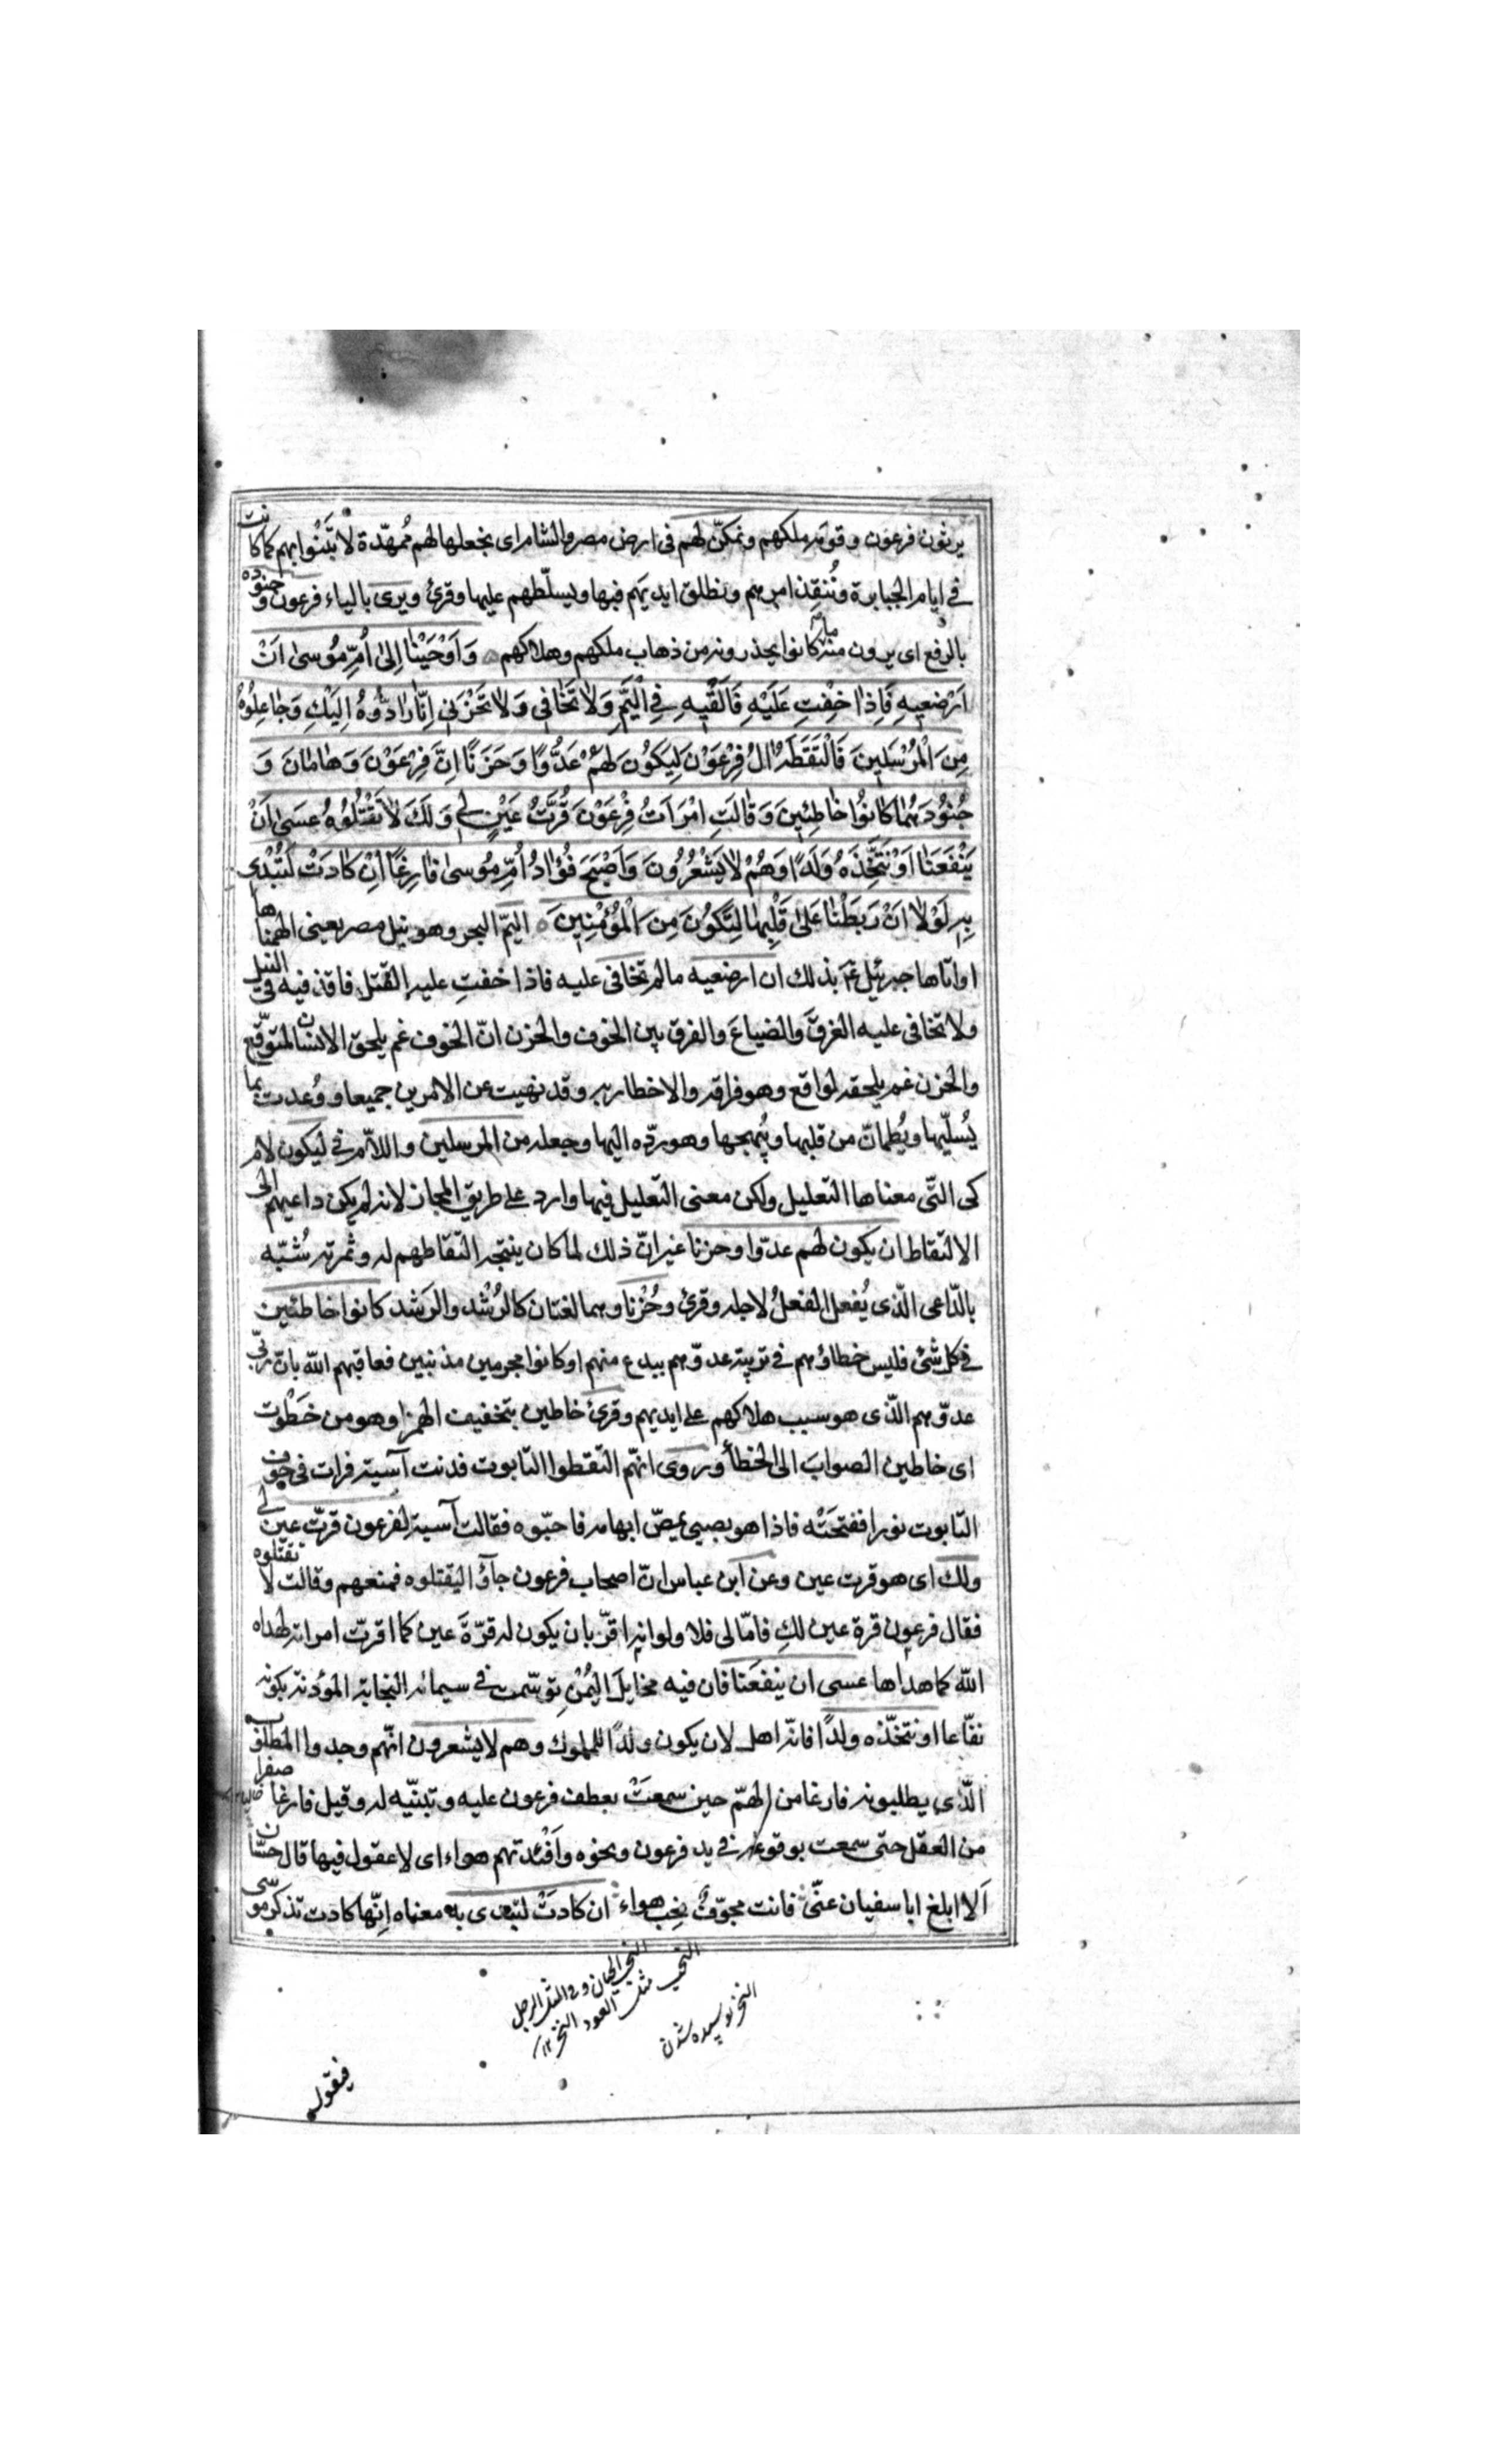 يرثون فرعون وقومه ملكهم ونمكّن لهم فى ارض مصر والشام اى نجعلها لهم مُمهّدة لا تَنْبُوا بهم كما كانت
فى ايام الجبابرة ونُنفِذ امرهم ونطلق ايديهم فيها ويسلّطهم عليها وقرئ ويرى بالياء فرعون وجنوده
بالرفع اى يرون منهم ما كانوا يحذرونه من ذهاب ملكهم وهلاكهم وَاَوْحَيْنٰا اِلىٰ اُمِّ مُوسىٰ اَنْ
اَرْضِعيهِ فَاِذٰا خِفْتِ عَلَيْهِ فَاَلْقيهِ فِى الْيَمِّ وَلاٰ تَخٰافى وَلاٰ تَحْزَنى اِنّٰا رٰادُّوهُ اِلَيْكِ وَجٰاعِلُوهُ
مِنَ الْمُرْسَلينَ فَالْتَقَطَهُ اٰلُ فِرْعَوْنَ لِيَكُونَ لَهُمْ عَدُوًّا وَحَزَنًا اِنَّ فِرْعَوْنَ وَهٰامٰانَ وَ
جُنُودَهُمٰا كٰانُوا خٰاطِئِينَ وَقٰالَتِ امْرَاَتُ فِرْعَوْنَ قُرَّتُ عَيْنٍ لى وَلَكَ لاٰ تَقْتُلُوهُ عَسىٰ اَنْ
يَنْفَعَنٰا اَوْ نَتَّخِذَهُ وَلَدًا وَهُمْ لاٰ يَشْعُرُونَ وَاَصْبَحَ فُؤٰادُ اُمِّ مُوسىٰ فٰارِغًا اِنْ كٰادَتْ لَتُبْدى
بِهِ لَوْلاٰ اَنْ رَبَطْنٰا عَلىٰ قَلْبِهٰا لِتَكُونَ مِنَ الْمُؤْمِنِينَ اليمّ البحر وهو نيل مصر يعنى الهمناها
او اتاها جبرئيل بذلك ان ارضعيه ما لم تخافى عليه فاذا خفتِ عليه القتل فاقذفيه فى النيل
ولا تخافى عليه الغرقَ والضياعَ والفرق بين الخوف والحزن انّ الخوف غم يلحق الانسان لمتوقّع
والحزن غم يلحقه لواقع وهو فراقه والاخطار به وقد نهيت عن الامرين جميعا ووُعدت بما
يُسلّيها ويُطمانّ من قلبها ويُبهجها وهو ردّه اليها وجعله من المرسلين واللاّم فى ليكون لام
كى التّى معناها التعليل ولكن معنى التعليل فيها وارد على طريق المجاز لانه لم يكن داعيهم الى
الالتقاط ان يكون لهم عدوّا وحزنا غير انّ ذلك لما كان ينتجه التقاطهم له وثمرته شُبّه
بالدّاعى الّذى يُفعل الفعلُ لاجله وقرئ وحُزْنا وهما لغتان كالرُشْد والرَشَد كانوا خاطئين
فى كل شئ فليس خطاؤهم فى تربية عدوّهم ببدع منهم او كانوا مجرمين مذنبين فعاقبهم الله بان ربّى
عدوّهم الّذى هو سبب هلاكهم على ايديهم وقرئ خاطين بتخفيف الهمز او هو من خطَوْت
اى خاطين الصوابَ الى الخطأ وروى انّهم التقطوا التابوت فدنت آسية فرات فى جوف
التابوت نورا ففتحَتْه فاذا هو بصبى يمصّ ابهامه فاحبّوه فقالت آسية لفرعون قرتّ عين لى
ولك اى هو قرت عين وعن ابن عباس انّ اصحاب فرعون جآؤا ليقتلوه فمنعهم وقالت لا تقتلوه
فقال فرعون قرة عين لكِ فامّا لى فلا ولو انه اقرّ بان يكون له قرّةَ عين كما اقرتّ امراته لهداه
الله كما هداها عسى ان ينفعَنا فان فيه مخايلَ اليُمْنِ توسّمت فى سيمائه النجابة المؤذنة بكونه
نفّاعا او نتخّذه ولدًا فانّه اهل لان يكون ولدًا للملوك وهم لا يشعرون انّهم وجدوا المطلوب
الّذى يطلبونه فارغا من الهمّ حين سمعَتْ بعطف فرعون عليه وتبنّيه له وقيل فارغا صفرا
من العقل حتى سمعت بوقوعه فى يد فرعون ونحوه وافْئدتهم هواء اى لا عقول فيها قال حسّان
اَلا ابلغ ابا سفيان عنّى فانت مجوّفٌ نخِب هواء ان كادَتْ لتبدى به معناه اِنّها كادت تذكر موسى
النخر پوسيده شدن
فيقول